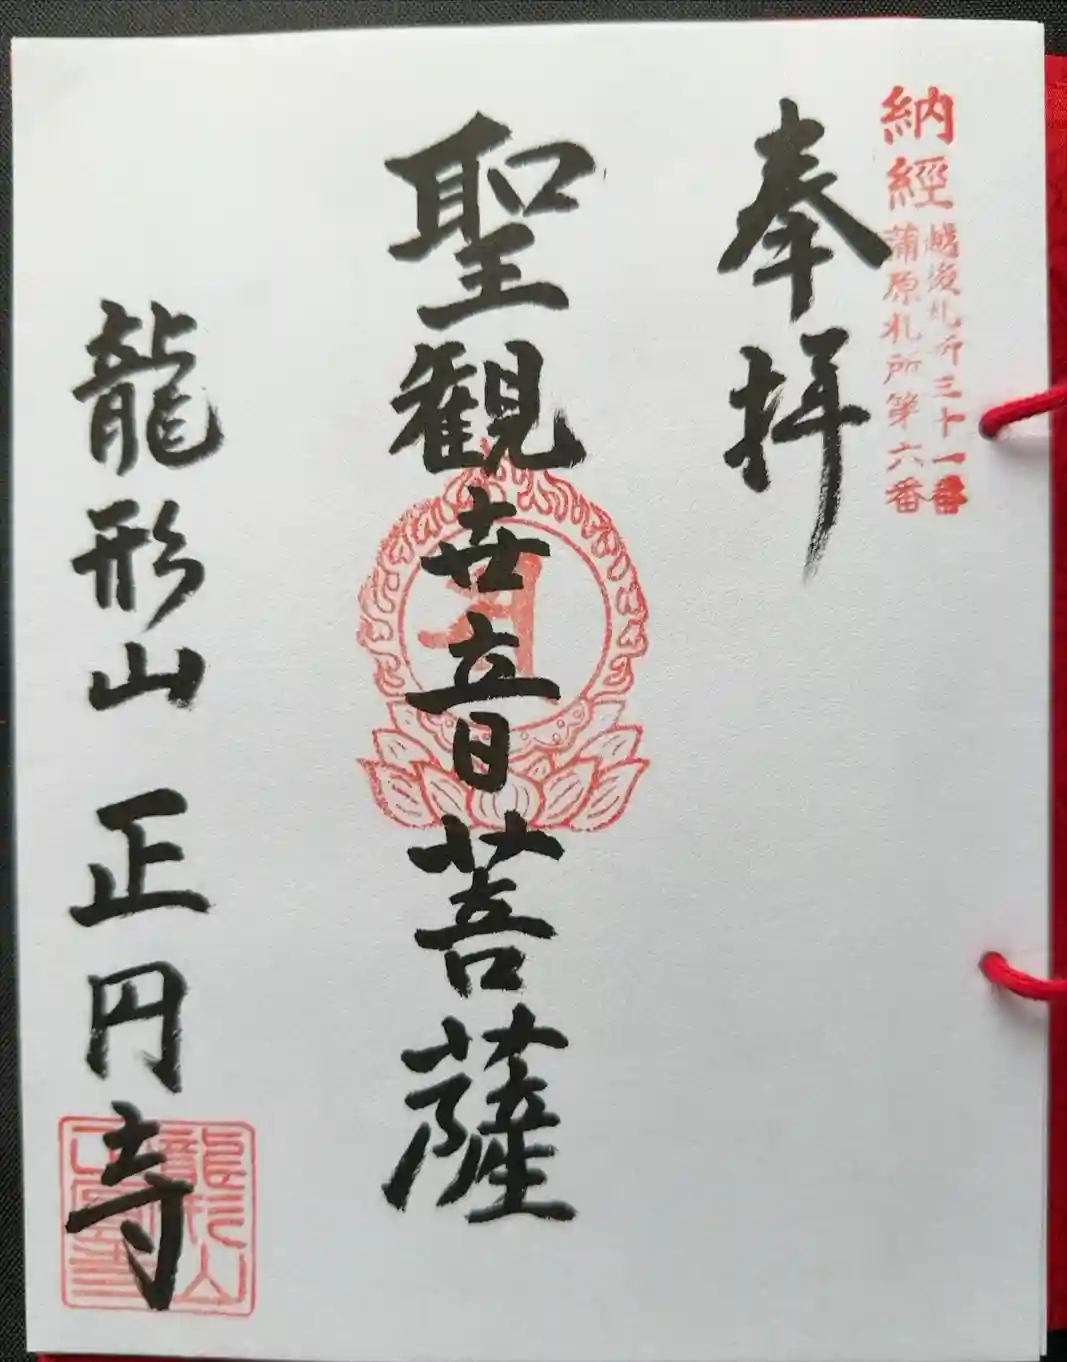 納經
越後札所三十一番
蒲原札所第六番
奉拝
聖観世音菩薩
龍形山 正円寺
龍形山